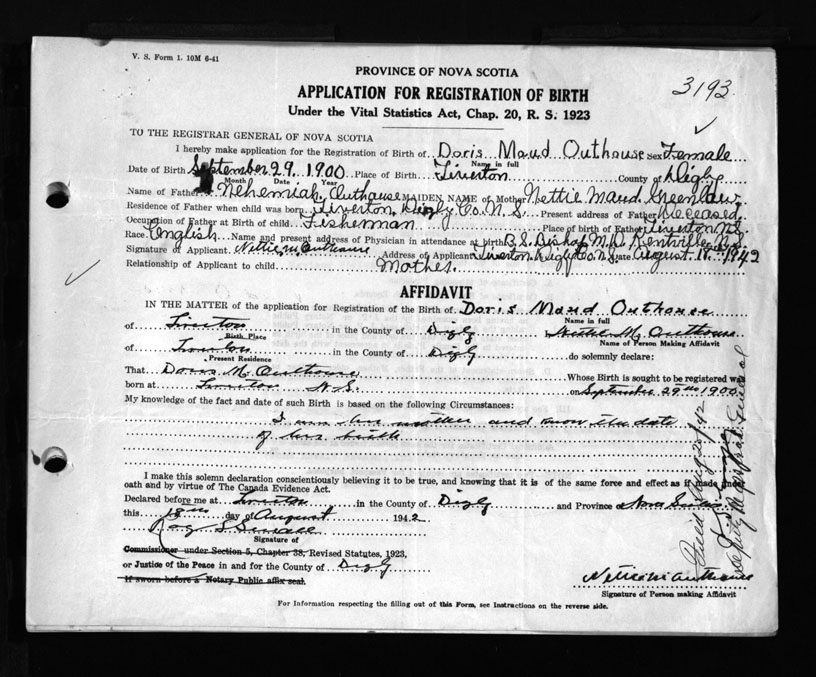 V. S. Form 1. 10M 6-41
3193
PROVINCE OF NOVA SCOTIA
APPLICATION FOR REGISTRATION OF BIRTH
Under the Vital Statistics Act, Chap. 20, R. S. 1923
TO THE REGISTRAR GENERAL OF NOVA SCOTIA
I hereby make application for the Registration of Birth of Doris Maud Outhouse Sex Female
Name in full
Date of Birth September 29 1900 Place of Birth Tiverton County of Digby
Month Date Year
Name of Father Nehemiah Outhouse MAIDEN NAME of Mother Nettie Maud Greenlaw
Residence of Father when child was born Tiverton Digby Co. N.S. Present address of Father Deceased
Occupation of Father at Birth of child Fisherman Place of birth of Father Tiverton N.S.
Race English Name and present address of Physician in attendance at birth B.S. Bishop M.D. Kentville N.S.
Signature of Applicant Nettie M. Outhouse Address of Applicant Tiverton Digby Co. N.S. Date August 18 1942
Relationship of Applicant to child Mother.
AFFIDAVIT
IN THE MATTER of the application for Registration of the Birth of Doris Maud Outhouse
Name in full
of Tiverton in the County of Digby Nettie M. Outhouse
Birth Place Name of Person Making Affidavit
of Tiverton in the County of Digby do solemnly declare:
Present Residence
That Doris M. Outhouse Whose Birth is sought to be registered was
born at Tiverton N.S. on September 29th 1900
My knowledge of the fact and date of such Birth is based on the following Circumstances:
I am her mother and know the date
of her birth
I make this solemn declaration conscientiously believing it to be true, and knowing that it is of the same force and effect as if made under
oath and by virtue of The Canada Evidence Act.
Declared before me at Tiverton in the County of Digby and Province Nova Scotia
this 18th day of August 1942
Signature of
Commissioner under Section 5, Chapter 38, Revised Statutes, 1923,
or Justice of the Peace in and for the County of Digby
If sworn before a Notary Public affix seal.
Nettie M Outhouse
Signature of Person making Affidavit
For Information respecting the filling out of this Form, see Instructions on the reverse side.
Filed Aug 21/42
Deputy Registrar General